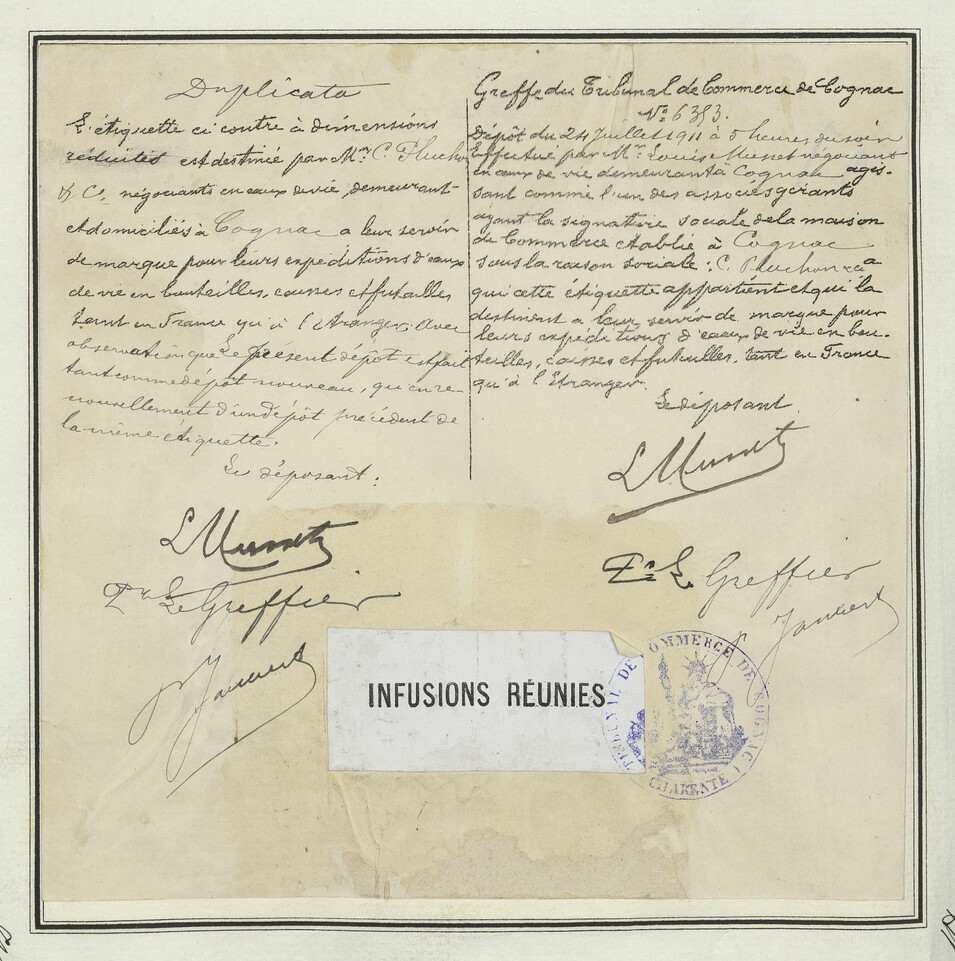 Duplicata
L'étiquette ci contre à dimensions
réduites est destinée par Mrs C. Pluchon
& Cie négociants en eaux de vie, demeurant
et domiciliés à Cognac a leur servir
de marque pour leurs expéditions d'eaux
de vie en bouteilles, caisses et futailles
tant en France qu'à l'Etranger. Avec
observation que le présent dépôt est fait
tant comme dépôt nouveau, qu'en re-
nouvellement d'un dépôt précédent de
la même étiquette.
Le déposant.
L Musset
Pr Le Greffier
Greffe du Tribunal de Commerce de Cognac
No 6353.
Dépôt du 24 Juillet 1911 à 5 heures du soir
Effectué par Mr Louis Musset négociant
en eaux de vie demeurant à Cognac agis-
sant comme l'un des associés gérants
ayant la signature sociale de la maison
de Commerce établie à Cognac
sous la raison sociale: C. Pluchon & Ca
qui cette étiquette appartient et qui la
destinent a leur servir de marque pour
leurs expéditions d'eaux de vie en bou-
teilles, caisses et futailles. tant en France
qu'à l'Etranger.
Le déposant
L Musset
Pr Le Greffier
INFUSIONS RÉUNIES
TRIBUNAL DE COMMERCE DE COGNAC
CHARENTE